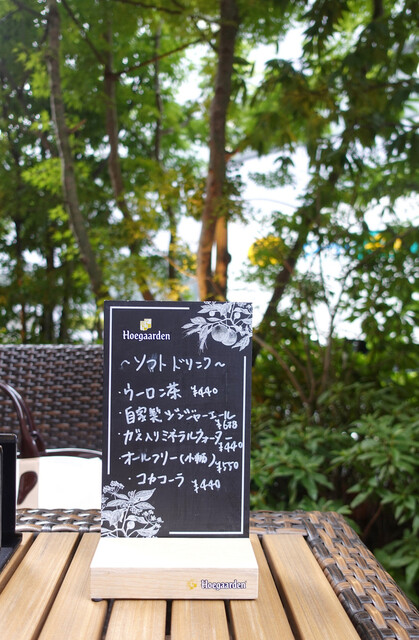 Hoegaarden
～ソフトドリンク～
・ウーロン茶 ¥440
・自家製ジンジャーエール ¥638
・ガス入りミネラルウォーター ¥440
・オールフリー(小瓶) ¥550
・コカコーラ ¥440
Hoegaarden